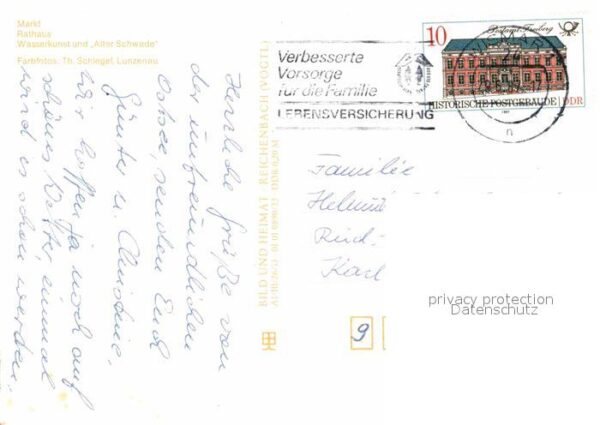 Markt
Rathaus
Wasserkunst und „Alter Schwede"
Farbfotos: Th. Schlegel, Lunzenau
Herzliche Grüße von
der unfreundlichen
Ostsee, senden Euch
Günter u.
wir hoffen ja noch auf
schönes Wetter, einmal
wird es schon werden.
BILD UND HEIMAT REICHENBACH (VOGTL
DDR 0,20 M
Verbesserte
Vorsorge
für die Familie
LEBENSVERSICHERUNG
10
Postamt Freiberg
HISTORISCHE POSTGEBÄUDE DDR
Familie
Helmut
Karl
9
privacy protection
Datenschutz